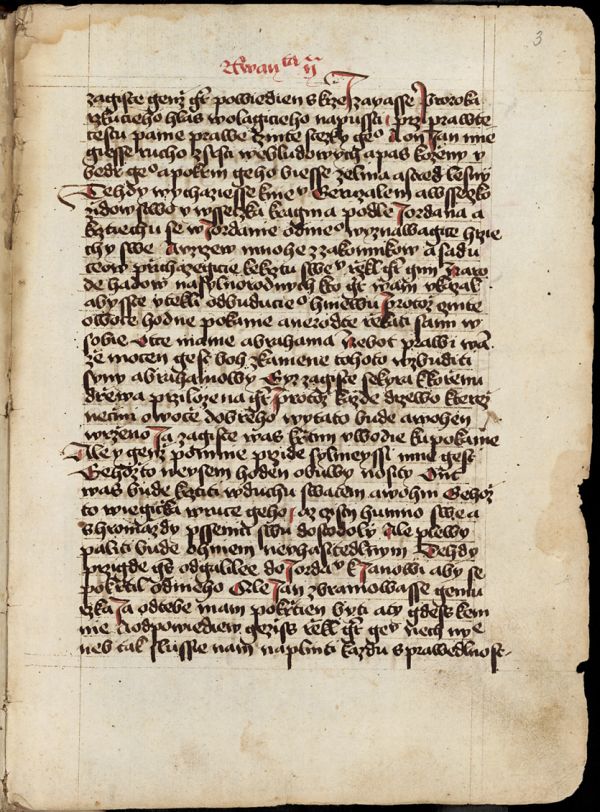 3
zagiste genz gt powiedien skrze Izayasse Proroka
rzkucieho hlas wolagicieho napussti prziprawte
cestu panie prawe czinte stezky geo A on Jan mie
giesse rucho zsrsti welbludowych a pas kozeny v
bedr geo a pokrm geho biesse zelina astred lesny
Tehdy wychaziesse knie v Geruzalem a wsseczko
zidowstwo y wsseczka kragina podle Jordana a
krztiechu se w Jordanie od nieo wyznawagice hrzie
chy swe A wzrzew mnohe z zakonnikow a sadu
ceow prichazegice kekrztu swev rekl gt gim Naro
de hadow nasylnorodnych kto gt wam vkazal
abysste vtekli odbuducieo hniewu Protoz czinte
owoce hodne pokanie a nerodte rziekati sami w
sobie Otce mame abrahama Nebot prawi wam
ze mocen gest boh zkamene tohoto wzbuditi
syny abrahamowy Gyz zagiste sekyra kkorenu
drzewa przilozena gt Protoz kazde drzewo kterez
neczini owoce dobreho wytato bude a wohen
wrzeno Ja zagiste was krztim vwodie ku pokanie
Ale y genz po mnie przide sylneyssi mne gest
Gehozto neysem hoden obuwy nosity Ont
was bude krztiti w duchu swatem a wohni Gehoz
to wiegicka w ruce geho a zczisti humno swe a
shromazdy pssenici swu do stodoly Ale plewy
paliti bude ohniem neuhassitedlnym Tehdy
przigde gs od galilee do Jordav k Janowi aby se
pokrtil od nieho Ale Jan zbraniowasse gemu
rzka Ja od tebe mam pokrtien byti a ty gdess kem
nie A odpowiediew geziss rekl gt gev nech nynie
neb tak slussie nam naplniti kazdu sprawedlnost